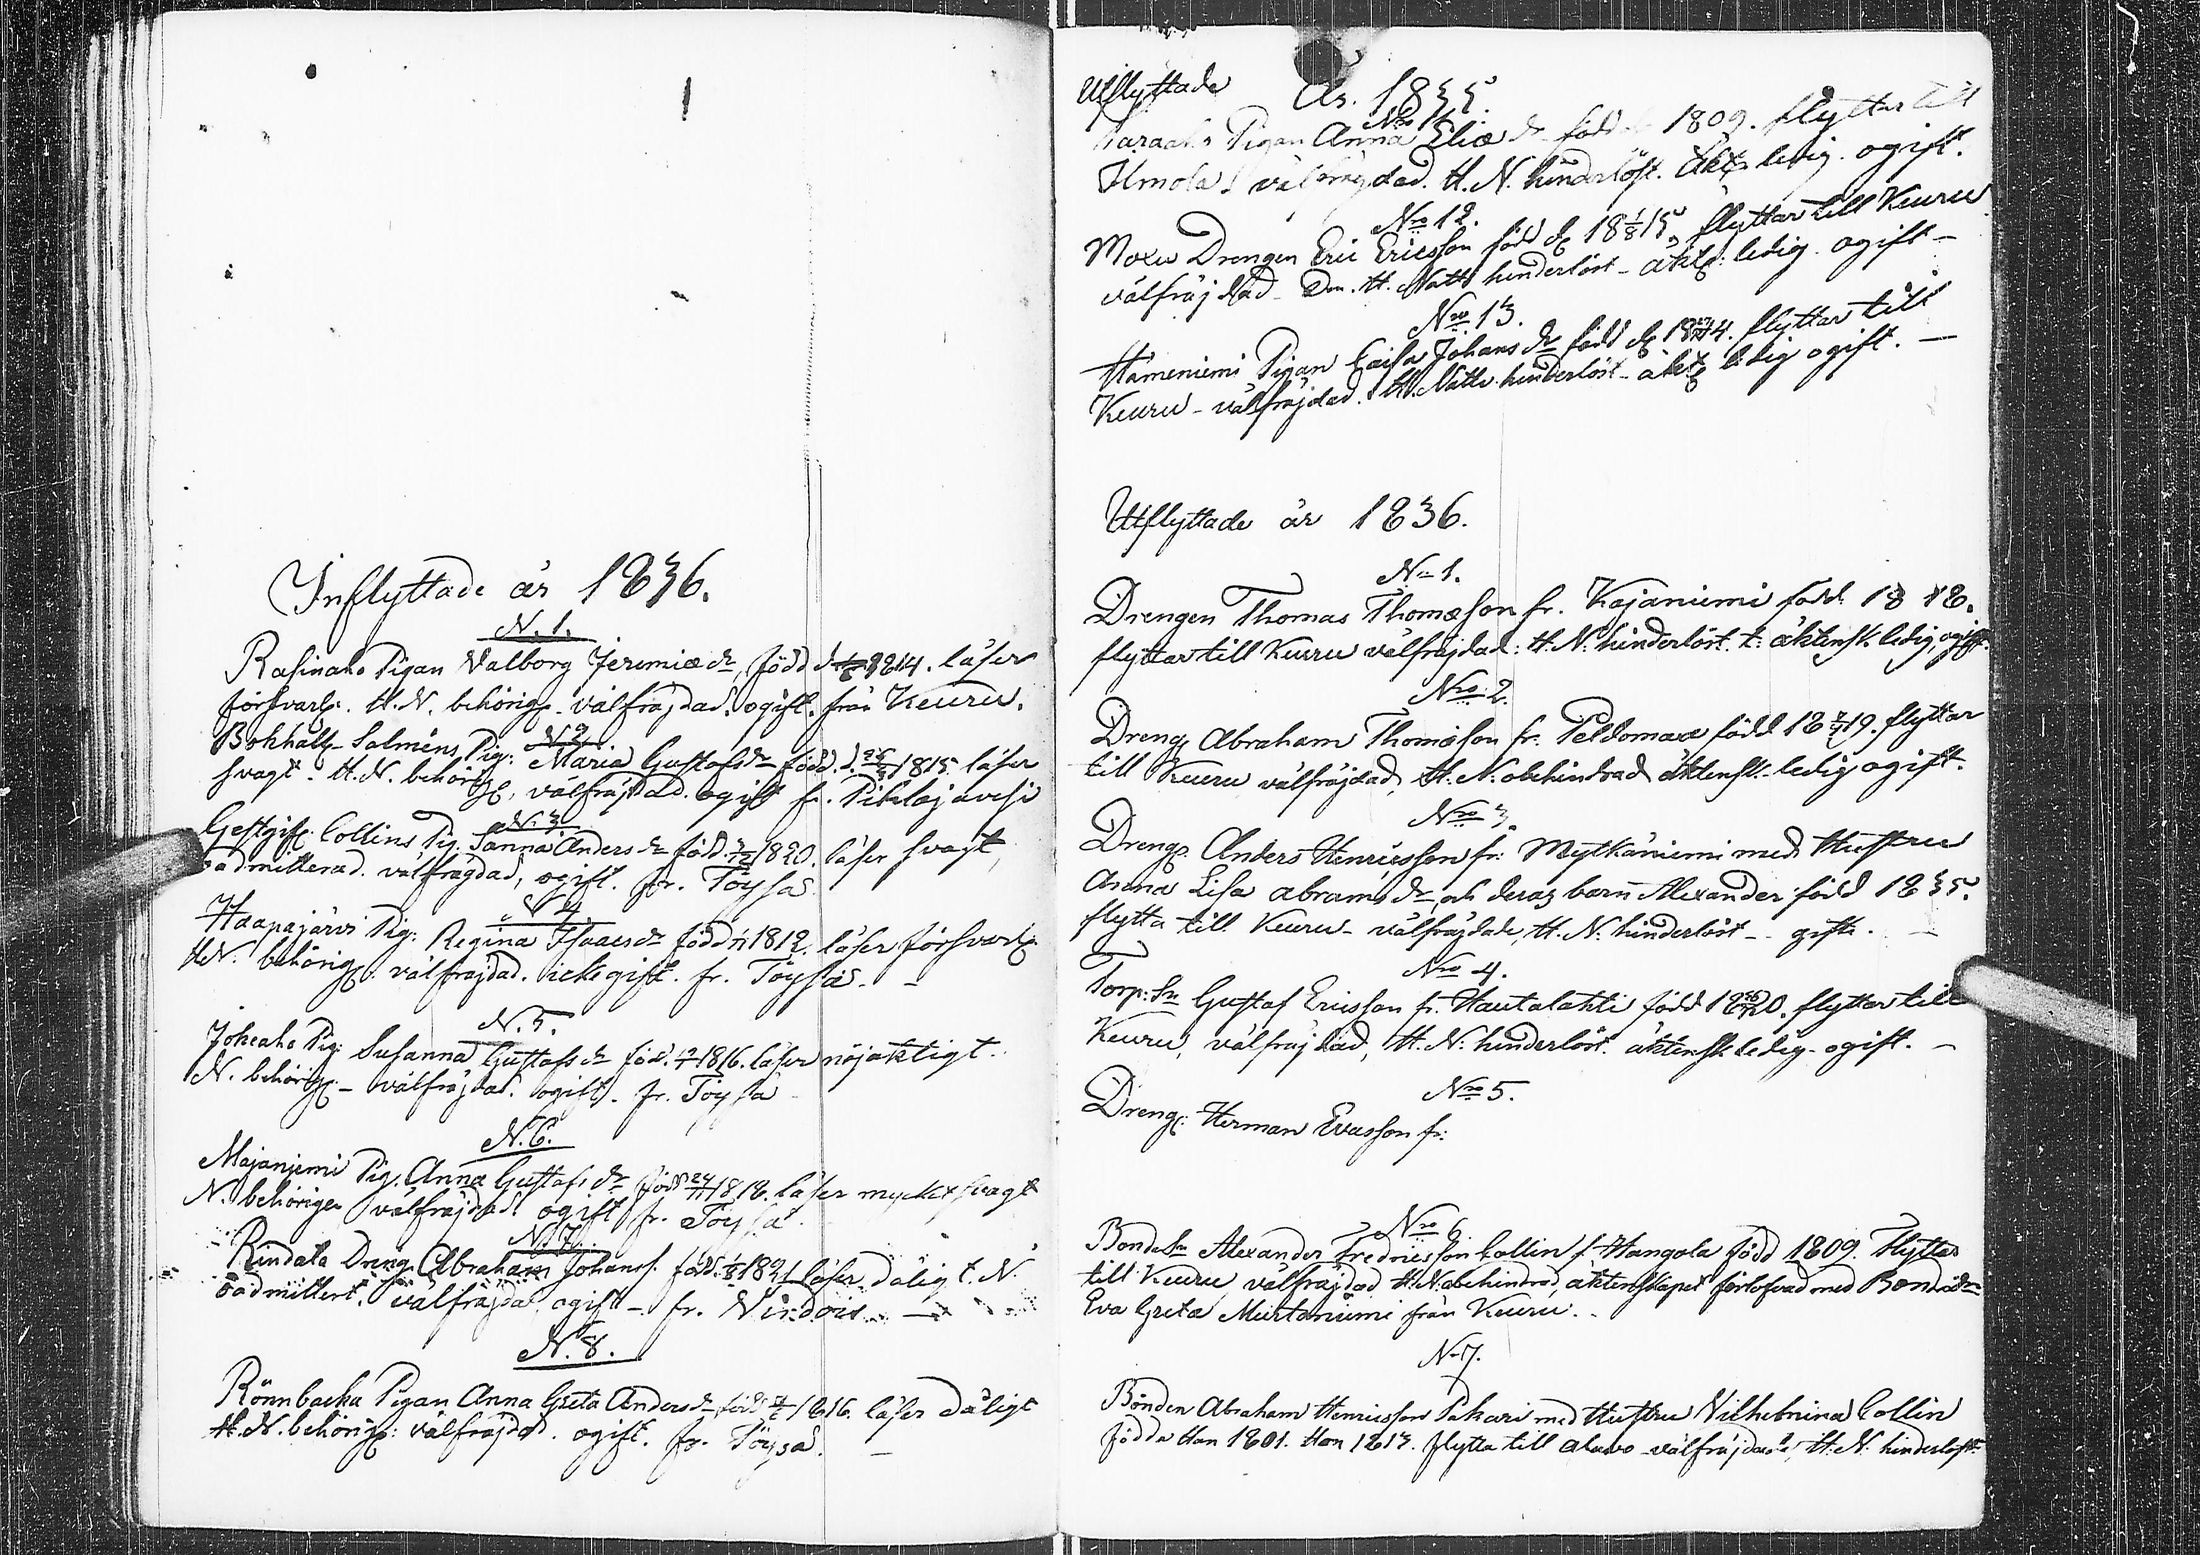 Inflyttade år 1836.
N. 1.
Rasinaho Pigan Valborg Jeremiæ dr, född d. 1814. läser
försvarl. H. N. behörig. välfräjdad. ogift. från Keuru.
N 2
Bokhåll. Salméns Pig: Maria Gustafsdr född. d. 1815 läser
svagt. H. N. behörig, välfräjdad. ogift fr. Pihlajavesi
N. 3
Gestgif. Collins Pig. Sanna Anders dr född. 1820. läser svagt,
oadmitterad. välfrägdad, ogift. fr. Töysä.
N 4.
Haapajärvi Pig: Regina Isaacs dr född 1812. läser försvarl.
H.N. behörig. välfräjdad. icke gift. fr. Töysä. –
N. 5.
Jokeaho Pig: Susanna Gustafs dr föd. 1816. läser nöjaktigt.
N. behörig. – välfräjdad. ogift. fr. Töysä
N. 6.
Majaniemi Pig. Anna Gustafs dr född 24/11 1818. läser mycket svagt
N. behörigen välfräjdad ogift fr. Töysä.
N. 7.
Rindala Dreng. Abraham Johans. föd. 1821 läser dåligt. N.
oadmittert. välfräjdad, ogift – fr. Virdois –
N. 8.
Rönnbacka Pigan Anna Greta Anders dr född 1816. läser dåligt
H. N. behörig: välfräjdad. ogift. fr. Töysä. –
Utflyttade År. 1835.
Nro 11.
Pigan Anna Eliæ dr född 1809. flyttar till
Ilmola välfrägdad. H. N. hinderlöst. äkt. ledig. ogift.
Nro 12.
Moxu Drengen Eric Ericsson född d. 18 1/8 15, flyttar till Keuru
välfräjdad – Den. H. Nattv hinderlöst – äkt: ledig. ogift –
Nro 13.
Hämeniemi Pigan Caisa Johans dr född d. 1814. flyttar till
Keuru – välfräjdad. H. Nattv. hinderlöst – äkt ledig ogift. –
Utflyttade år 1836.
N– 1.
Drengen Thomas Thomæson fr. Kojaniemi född 18 18.
flyttar till Keuru välfräjdad: H. N: hinderlöst. t: äktensk. ledig, ogift.
Nro 2.
Dreng Abraham Thomæson fr. Peldomaa född 18 19. flyttar
till Keuru välfräjdad, H. N. obehindrad äktensk. ledig ogift.
Nro 3.
Dreng. Anders Henricsson fr: Mytkäniemi med Hustru
Anna Lisa Abrams dr och deras barn Alexander född 1835.
flytta till Keuru – välfräjdade, H. N. hinderlöst – gifte. –
Nro 4.
Torp: Sn Gustaf Ericsson fr. Hautalahti född 1820. flyttar till
Keuru, välfräjdad, H. N: hinderlöst. äktensk ledig – ogift. –
Nro 5.
Dreng: Herman Evasson fr:
Nro 6
Bonde Sn Alexander Fredricsson Collin f. Hangola född 1809. Flyttar
till Keuru, välfräjdad H. N. obehindrad, äktenskapet förlofvad med Bondedr
Eva Greta Murtoniemi från Keuru. –
N– 7.
Bonden Abraham Henricsson Pakari med Hustru Vilhelmina Collin
födda Han 1801. Hon 1813. flytta till Alavo välfräjdade, H. N. hinderlöst